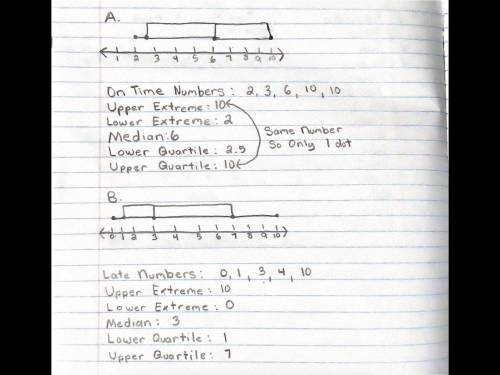 A.
1 2 3 4 5 6 7 8 9 10
On Time Numbers: 2, 3, 6, 10, 10
Upper Extreme: 10
Lower Extreme: 2
Same Number
So Only 1 dot
Median: 6
Lower Quartile: 2.5
Upper Quartile: 10
B.
0 1 2 3 4 5 6 7 8 9 10
Late Numbers: 0, 1, 3, 4, 10
Upper Extreme: 10
Lower Extreme: 0
Median: 3
Lower Quartile: 1
Upper Quartile: 7